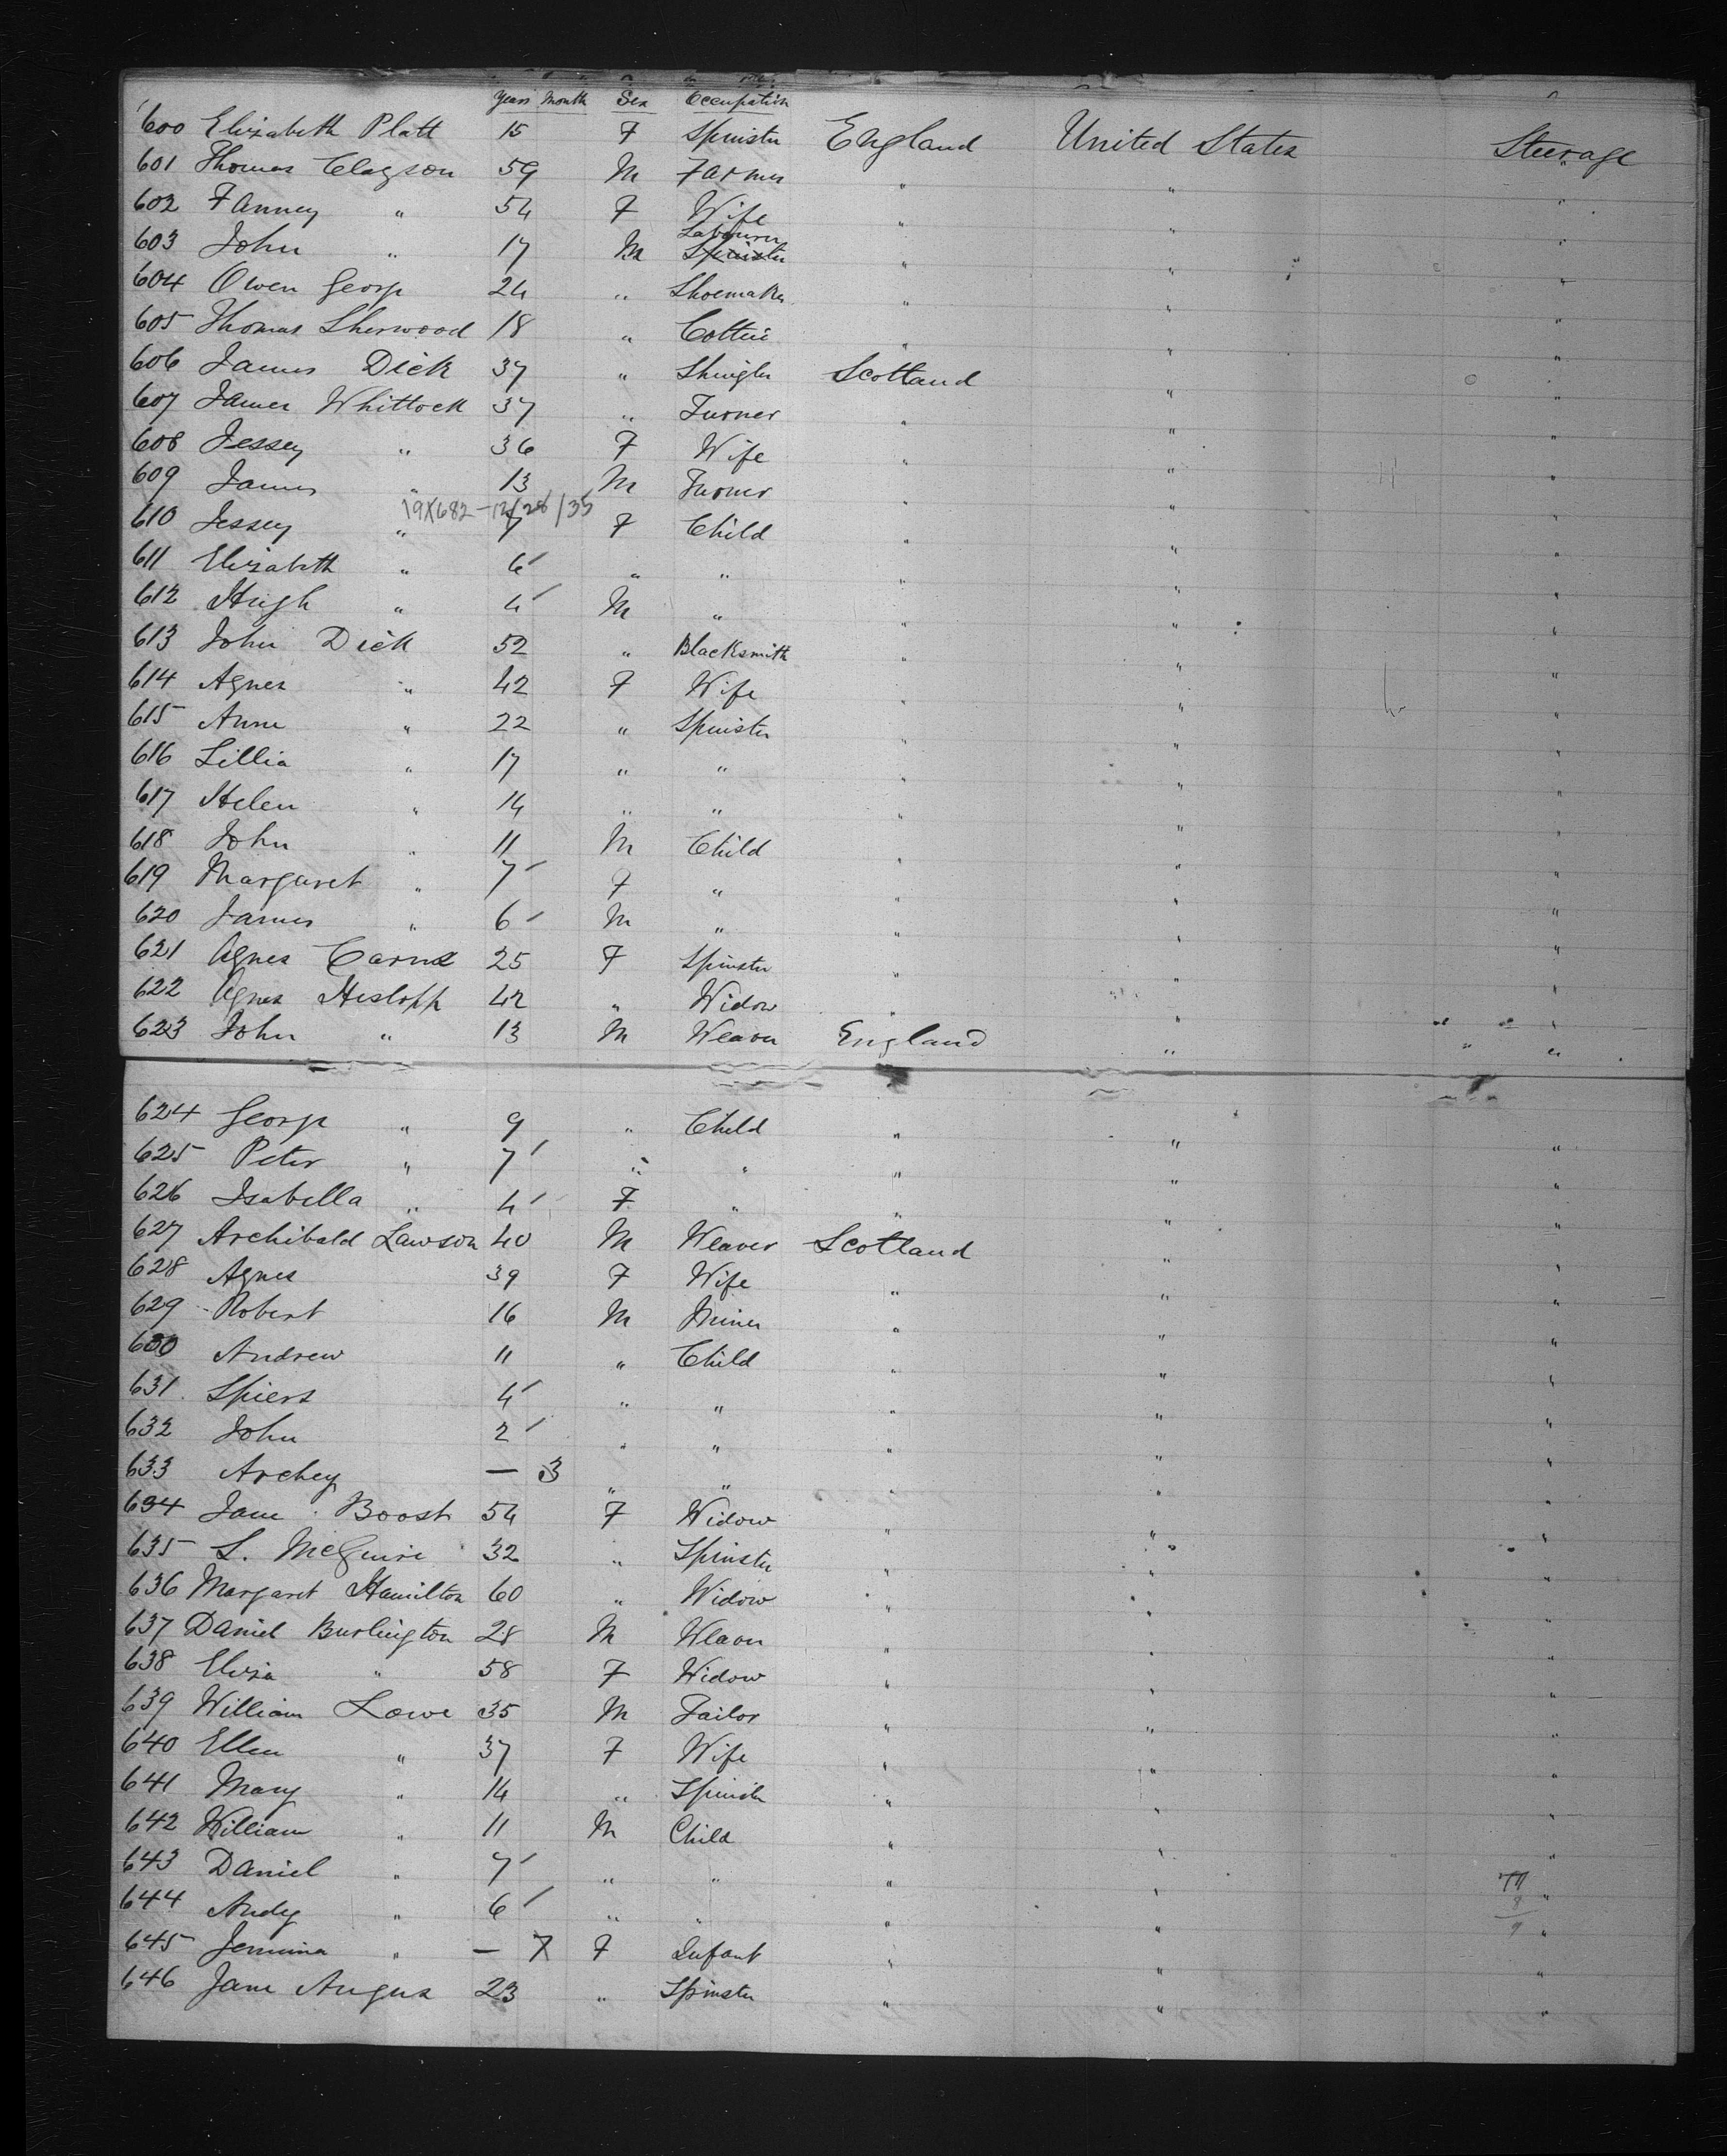 Years Month Sex Occupation
600 Elizabeth Platt 15 F Spinster England United States Steerage
601 Thomas Clagson 59 M Farmer " " "
602 Fanney " 54 F Wife " " "
Labourer
603 John " 17 M Spinster " " "
604 Owen George 24 " Shoemaker " " "
605 Thomas Sherwood 18 " " " "
606 James Dick 37 " Shingler Scotland " "
607 James Whittock 37 " Turner " " "
608 Jessey " 36 F Wife " " "
609 James " 13 M Turner " " "
19X682-12/28/35
610 Jessey " 7 F Child " " "
611 Elizabeth " 6 " " " " "
612 Hugh " 4 M " " " "
613 John Dick 52 " Blacksmith " " "
614 Agnes " 42 F Wife " " "
615 Anne " 22 " Spinster " " "
616 Lillia " 17 " " " " "
617 Helen " 14 " " " " "
618 John " 11 M Child " " "
619 Margaret " 7 F " " " "
620 James " 6 M " " " "
621 Agnes Carns 25 F Spinster " " "
622 Agnes Heslopp 42 " Widow " " "
623 John " 13 M Weaver England " "
624 George " 9 " Child " " "
625 Peter " 7 " " " " "
626 Isabella " 4 F " " " "
627 Archibald Lawson 40 M Weaver Scotland " "
628 Agnes 39 F Wife " " "
629 Robert 16 M Miner " " "
630 Andrew 11 " Child " " "
631 Spiers 4 " " " " "
632 John 2 " " " " "
633 Archey — 3 " " " " "
634 Jane Boost 54 F Widow " " "
635 S. McGuire 32 " Spinster " " "
636 Margaret Hamilton 60 " Widow " " "
637 Daniel Burlington 28 M Weaver " " "
638 Eliza " 58 F Widow " " "
639 William Lowe 35 M Tailor " " "
640 Ellen " 37 F Wife " " "
641 Mary " 14 " Spinster " " "
642 William " 11 M Child " " "
643 Daniel " 7 " " " " "
644 Andy " 6 " " " " "
645 Jemima " — 7 F Infant " " "
646 Jane Angus 23 " Spinster " " "